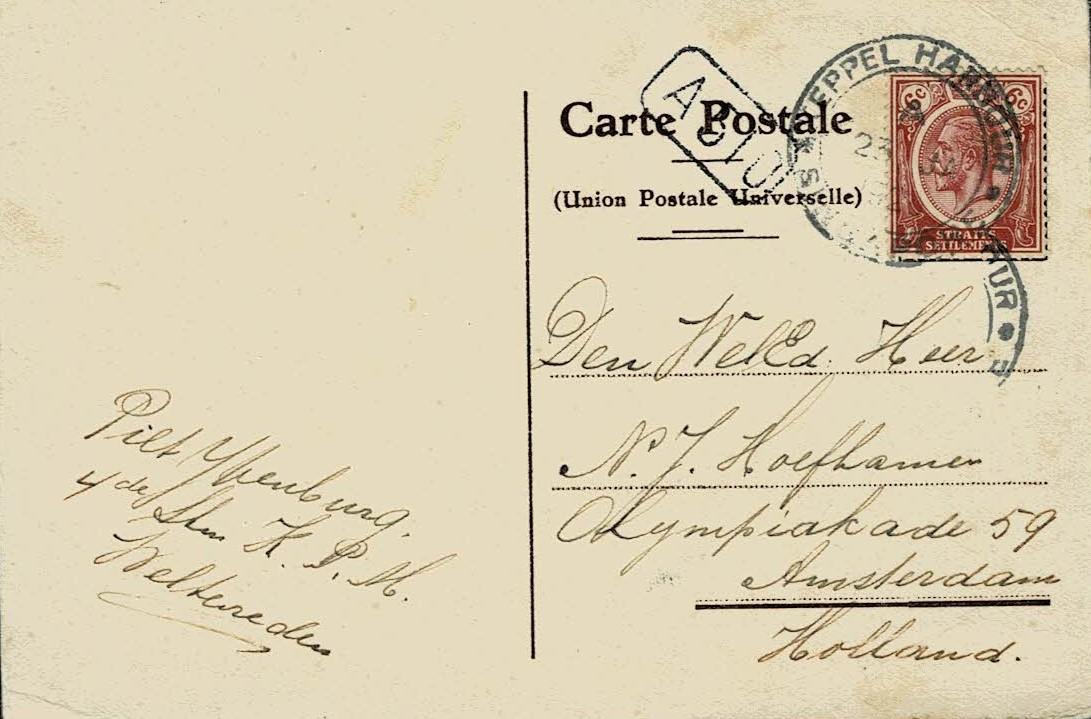 Carte Postale
(Union Postale Universelle)
KEPPEL HARBOUR
23
6c 6c
STRAITS
SETTLEMENTS
Den WelEd. Heer
N. J. Hoefhamer
Olympiakade 59
Amsterdam
Holland.
Piet
4de K. P. M.
Weltevreden